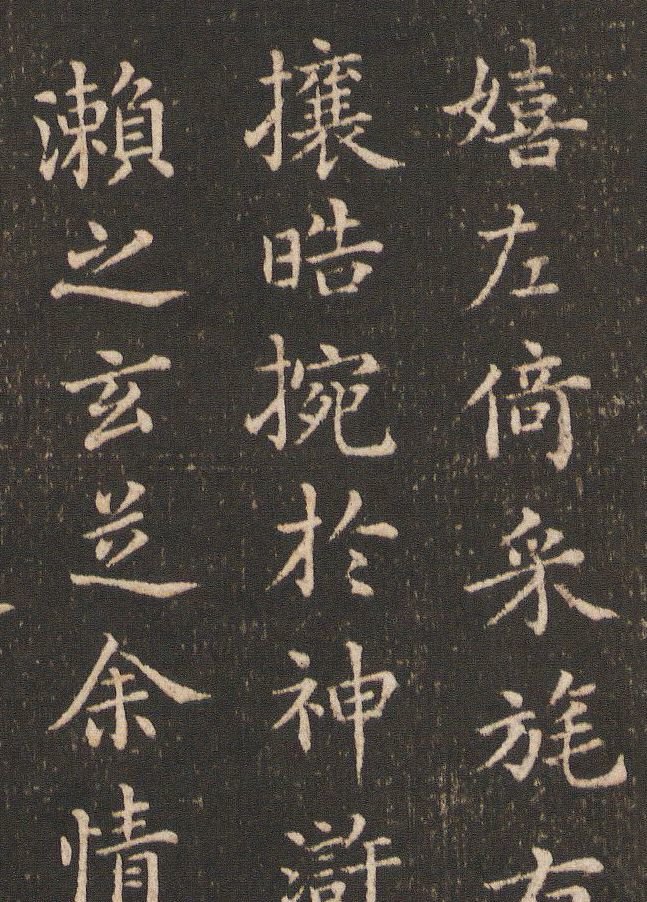 嬉左倚采旄右
攘皓捥於神滸
瀨之玄芝余情